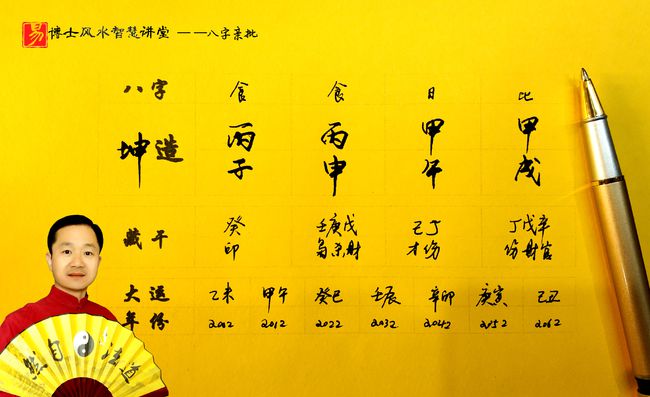 易 博士风水智慧讲堂 ——八字亲批
八字 食 食 日 比
坤造 丙 丙 甲 甲
子 申 午 戌
藏干 癸 壬庚戊 己丁 丁戊辛
印 枭杀财 才伤 伤财官
大运 乙未 甲午 癸巳 壬辰 辛卯 庚寅 己丑
年份 2002 2012 2022 2032 2042 2052 2062
然自法道